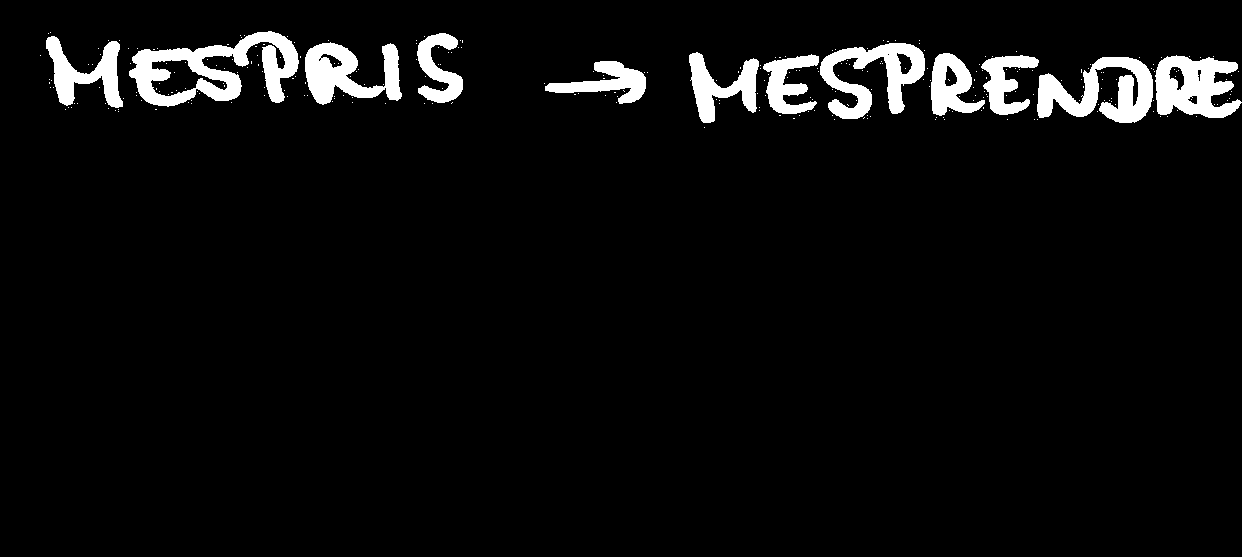 MESPRIS → MESPRENDRE